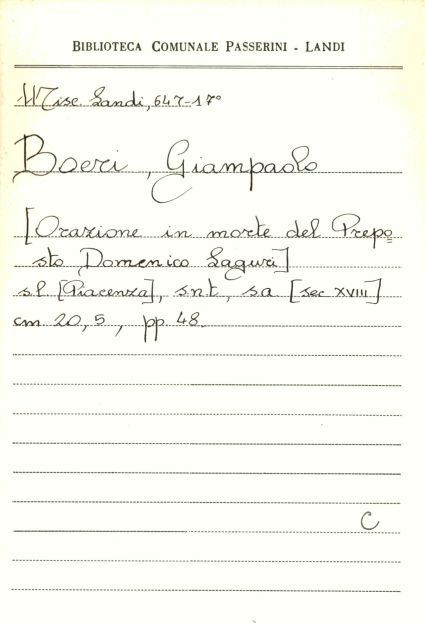 BIBLIOTECA COMUNALE PASSERINI - LANDI
Misc. Landi, 647-17°
Boeri, Giampaolo
[Orazione in morte del Prepo=
sto Domenico Laguri]
s.l. [Piacenza], s.n.t., s.a. [sec XVIII]
cm 20,5, pp. 48.
C